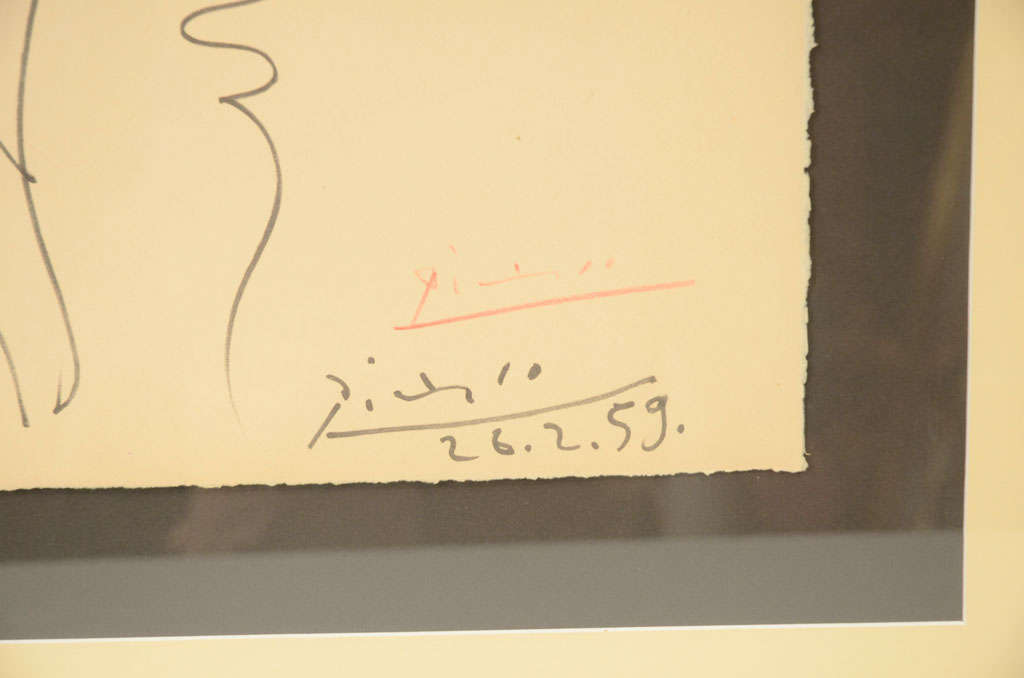 Picasso
Picasso
26.2.59.